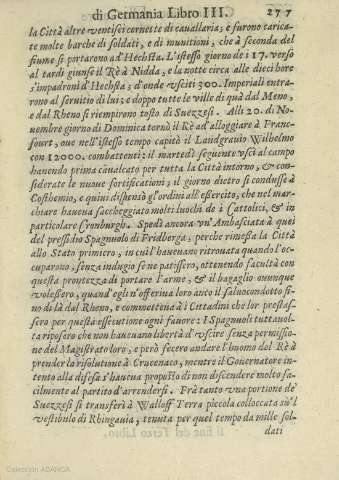 di Germania Libro III. 277
la Città altre ventisei cornette di cauallaria; e furono carica-
te molte barche di soldati, e di munitioni, che à seconda del
fiume si portarono ad Hechsta. L'istesso giorno de i 17. verso
al tardi giunse il Rè à Nidda, e la notte circa alle dieci hore
s'impadronì d'Hechsta; d'onde vsciti 300. Imperiali entra-
rono al seruitio di lui; e doppo tutte le ville di quà dal Meno,
e dal Rheno si riempirono tosto di Suezzesi. Alli 20. di No-
uembre giorno di Dominica tornò il Rè ad'alloggiare à Franc-
fourt, oue nell'istesso tempo capitò il Landgrauio Wilhelmo
con 12000. combattenti; il martedì seguente vscì al campo
hauendo prima caualcato per tutta la Città intorno, & con-
siderate le nuoue fortificationi; il giorno dietro si condusse à
Costhemio, e quiui dispensò gl'ordini all'essercito, che nel mar-
chiare haueua saccheggiato molti luochi de i Cattolici, & in
particolare Cronburgh. Spedì ancora vn'Ambasciata à quei
del pressidio Spagnuolo di Fridberga, perche rimessa la Città
allo Stato primiero, in cui l'haueuano ritrouata quando l'oc-
cuparono, senza indugio se ne partissero, ottenendo facultà con
questa prontezza di portare l'arme, & il bagaglio ouunque
volessero, quand'egli n'offeriua loro anco il saluocondotto si-
no di là dal Rheno, e commetteua à i Cittadini che lor prestas-
sero per questa essecutione ogni fauore: I Spagnuoli tutta uol-
ta risposero che non haueuano libertà d'vscire senza permissio-
ne del Magistrato loro, e però fecero andare l'huomo del Rè à
prender la risolutione à Crucenaco, mentre il Gouernatore in-
tento alla difesa s'haueua proposto di non discendere molto fa-
cilmente al partito d'arrendersi. Frà tanto vna portione de'
Suezzesi si transferì à Walloff Terra piccola colloccata sù'l
vestibulo di Rhingauia, tenuta per quel tempo da mille sol-
dati
Colección ABANCA